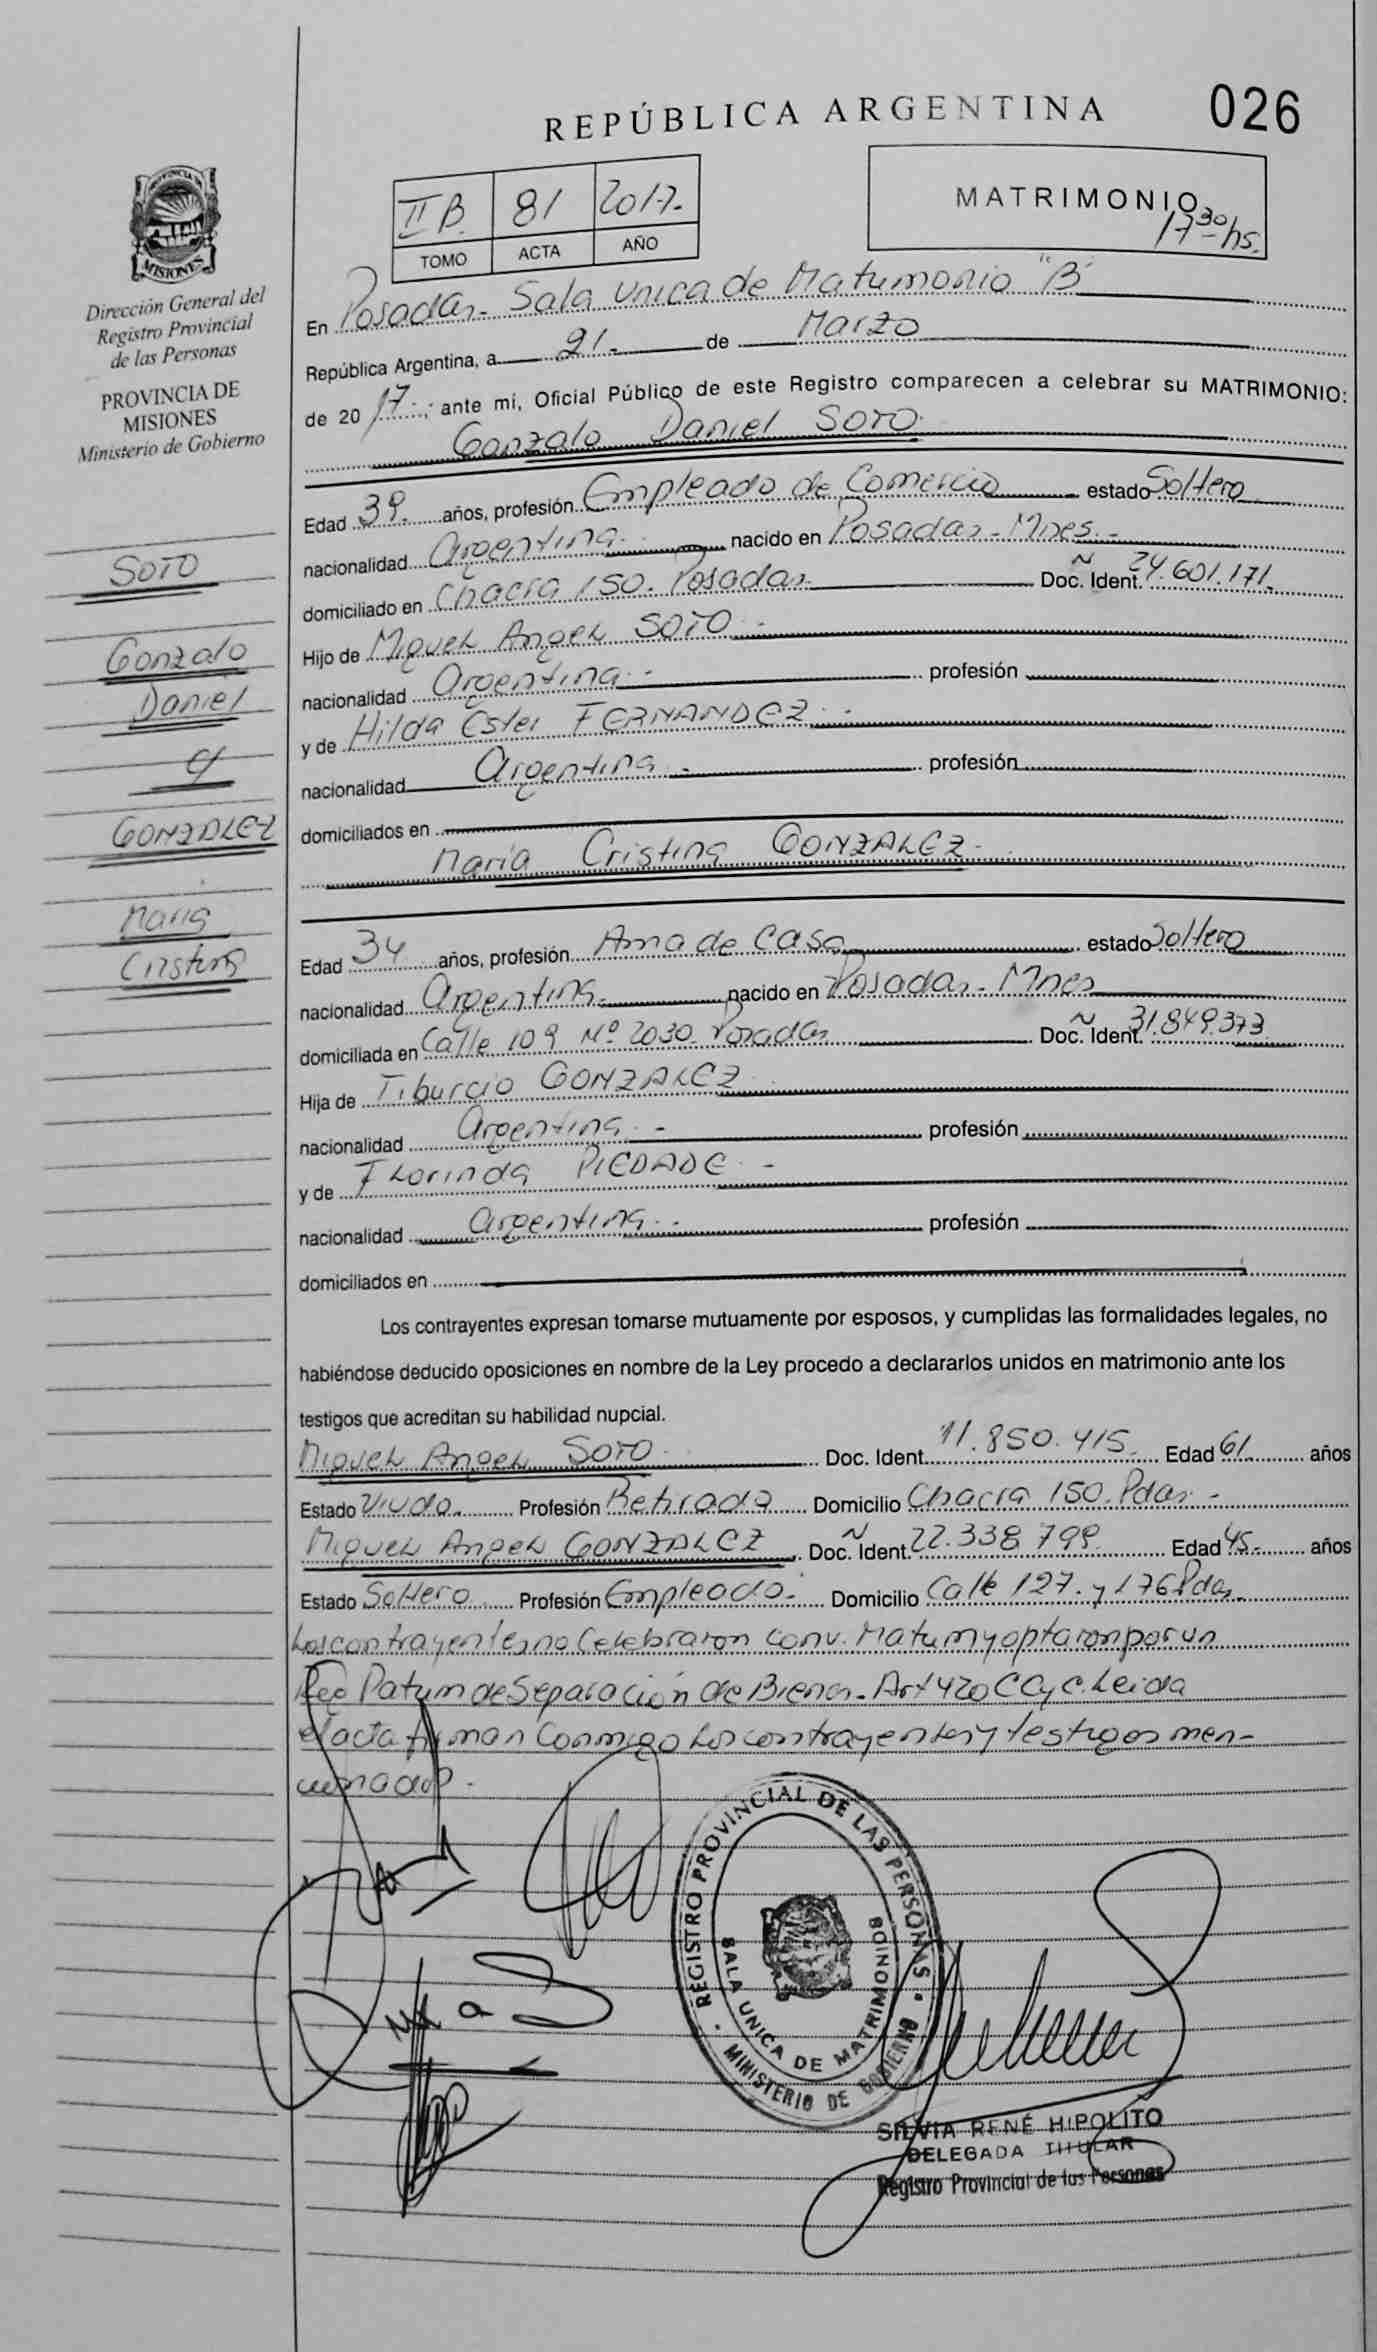 REPÚBLICA ARGENTINA
026
II B. 81 2017.
TOMO ACTA AÑO
MATRIMONIO
17 30 hs.
PROVINCIA DE
MISIONES
Dirección General del
Registro Provincial
de las Personas
PROVINCIA DE
MISIONES
Ministerio de Gobierno
SOTO
Gonzalo
Daniel
c/
GONZALEZ
Maria
Cristina
En Posadas - Sala unica de Matrimonio "B"
República Argentina, a 21.- de Marzo
de 2017.-, ante mí, Oficial Público de este Registro comparecen a celebrar su MATRIMONIO:
Gonzalo Daniel SOTO.
Edad 39. años, profesión Empleado de Comercio estado Soltero
nacionalidad Argentina.- nacido en Posadas - Mnes.-
domiciliado en Chacra 150. Posadas. Doc. Ident. 24.601.171.
Hijo de Miguel Angel SOTO.-
nacionalidad Argentina.- profesión
y de Hilda Ester FERNANDEZ.-
nacionalidad Argentina.- profesión
domiciliados en
Maria Cristina GONZALEZ.-
Edad 34 años, profesión Ama de Casa estado Soltera
nacionalidad Argentina.- nacido en Posadas - Mnes
domiciliada en Calle 109 Nº 2030. Posadas Doc. Ident. 31.849.373
Hija de Tiburcio GONZALEZ.
nacionalidad Argentina.- profesión
y de Florinda PIEDADE.-
nacionalidad Argentina.- profesión
domiciliados en
Los contrayentes expresan tomarse mutuamente por esposos, y cumplidas las formalidades legales, no
habiéndose deducido oposiciones en nombre de la Ley procedo a declararlos unidos en matrimonio ante los
testigos que acreditan su habilidad nupcial.
Miguel Angel SOTO. Doc. Ident. 11.850.415. Edad 61. años
Estado Viudo. Profesión Retirado Domicilio Chacra 150. Pdas.-
Miguel Angel GONZALEZ. Doc. Ident. 22.338.799. Edad 45. años
Estado Soltero Profesión Empleado. Domicilio Calle 127. y 176 Pdas.
Los contrayentes no Celebraron Conv. Matrim y optaron por un
Reg Patrim de Separación de Bienes - Art 420 CCyC. Leida
el acta firman Conmigo Los contrayentes y testigos men-
cionados.-
REGISTRO PROVINCIAL DE LAS PERSONAS
MINISTERIO DE GOBIERNO
SALA UNICA DE MATRIMONIOS
SILVIA RENÉ HIPOLITO
DELEGADA TITULAR
Registro Provincial de las Personas